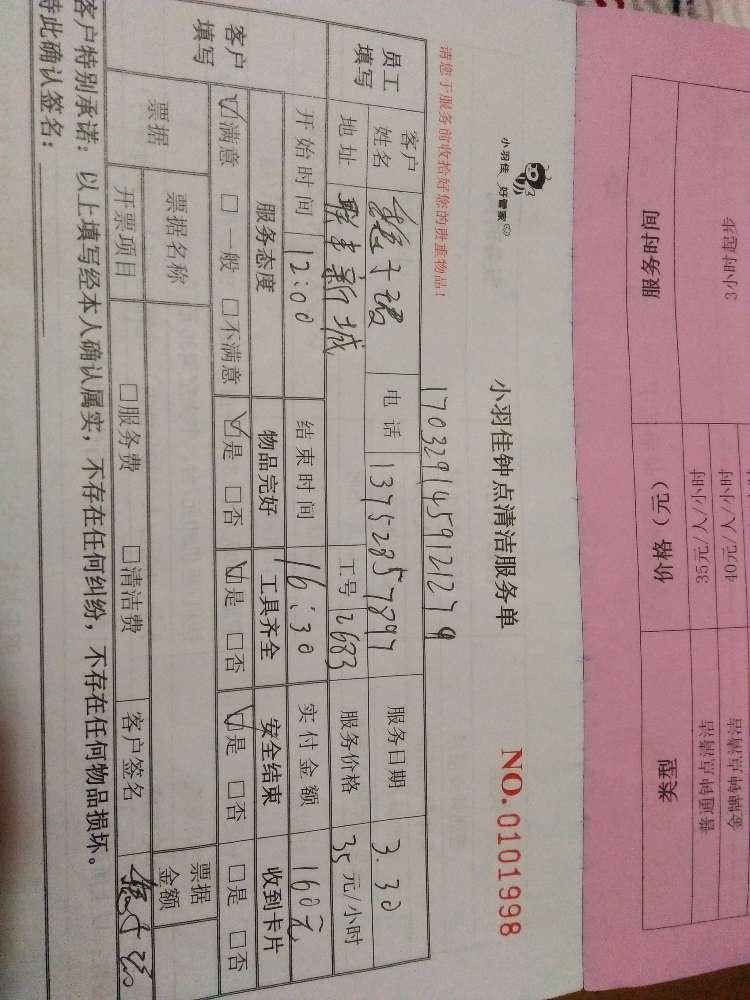 小羽佳 好管家
小羽佳钟点清洁服务单
NO.0101998
请您于服务前收拾好您的贵重物品！
1703291459121279
员工填写
客户姓名
电话
13752857897
服务日期
3.30
地址
联丰新城
工号
2683
服务价格
35元/小时
开始时间
12:00
结束时间
16:30
实付金额
160元
客户填写
服务态度
物品完好
工具齐全
安全结束
收到卡片
☑满意 □一般 □不满意
☑是 □否
☑是 □否
☑是 □否
□是 □否
票据
票据名称
票据金额
开票项目
□服务费 □清洁费
客户签名
客户特别承诺：以上填写经本人确认属实，不存在任何纠纷，不存在任何物品损坏。
特此确认签名：
服务时间
价格（元）
类型
3小时起步
35元/人/小时
普通钟点清洁
40元/人/小时
金牌钟点清洁